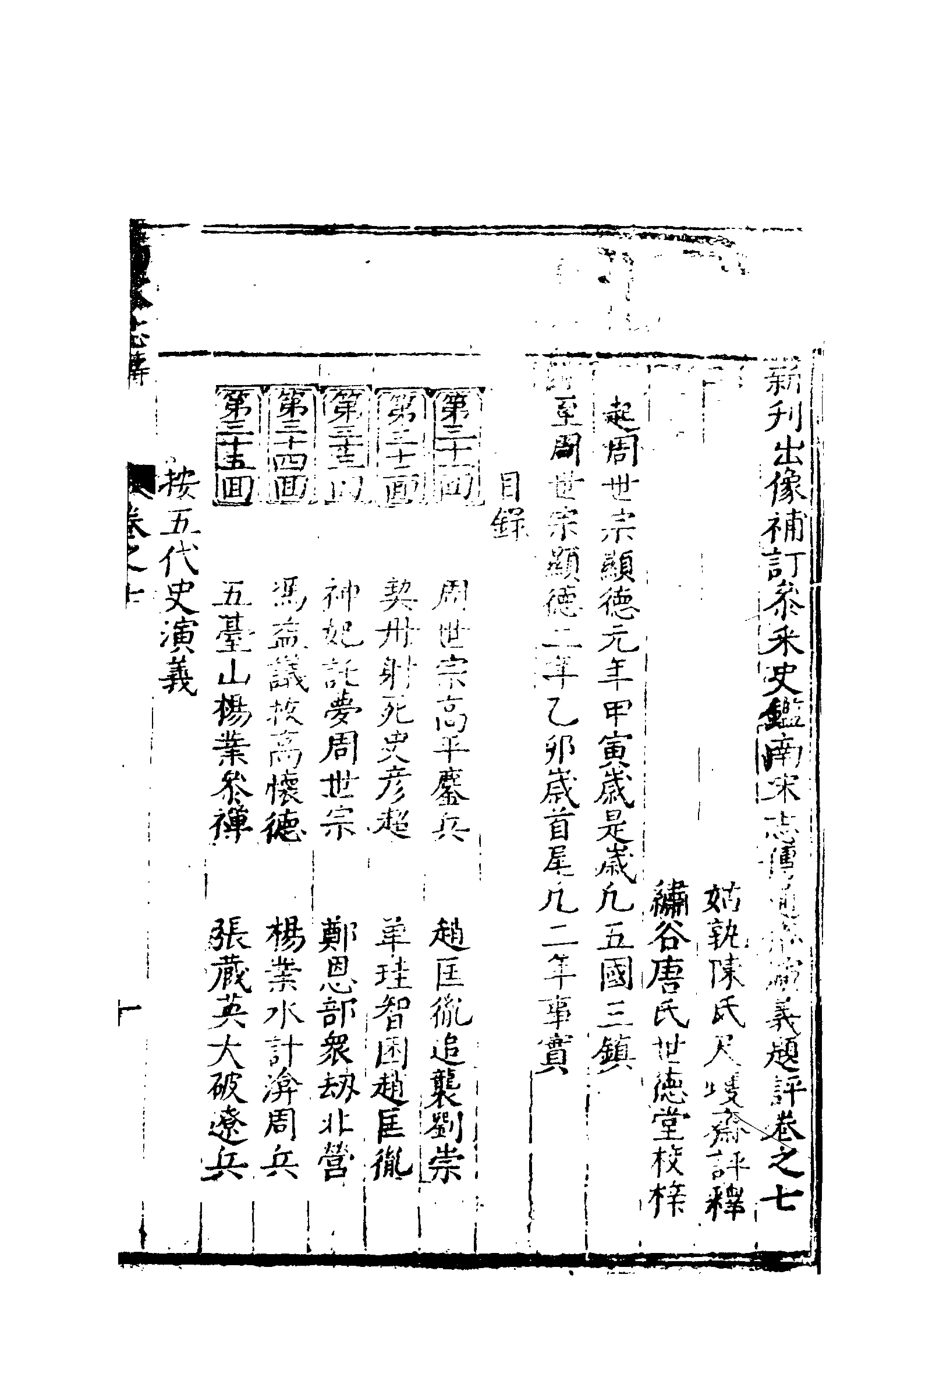 新刊出像補訂參采史鑑南宋志傳通俗演義題評卷之七
姑孰陳氏尺蠖齋評釋
繡谷唐氏世德堂校梓
起周世宗顯德元年甲寅歲是歲凡五國三鎮
至周世宗顯德二年乙卯歲首尾凡二年事實
目錄
第三十一回 周世宗高平鏖兵 趙匡胤追襲劉崇
第三十二回 契丹射死史彥超 單珪智困趙匡胤
第三十三回 神妃託夢周世宗 鄭恩部衆刼北營
第三十四回 馮益議救高懷德 楊業水計渰周兵
第三十五回 五臺山楊業參禪 張藏英大破遼兵
按五代史演義
志傳
卷之七